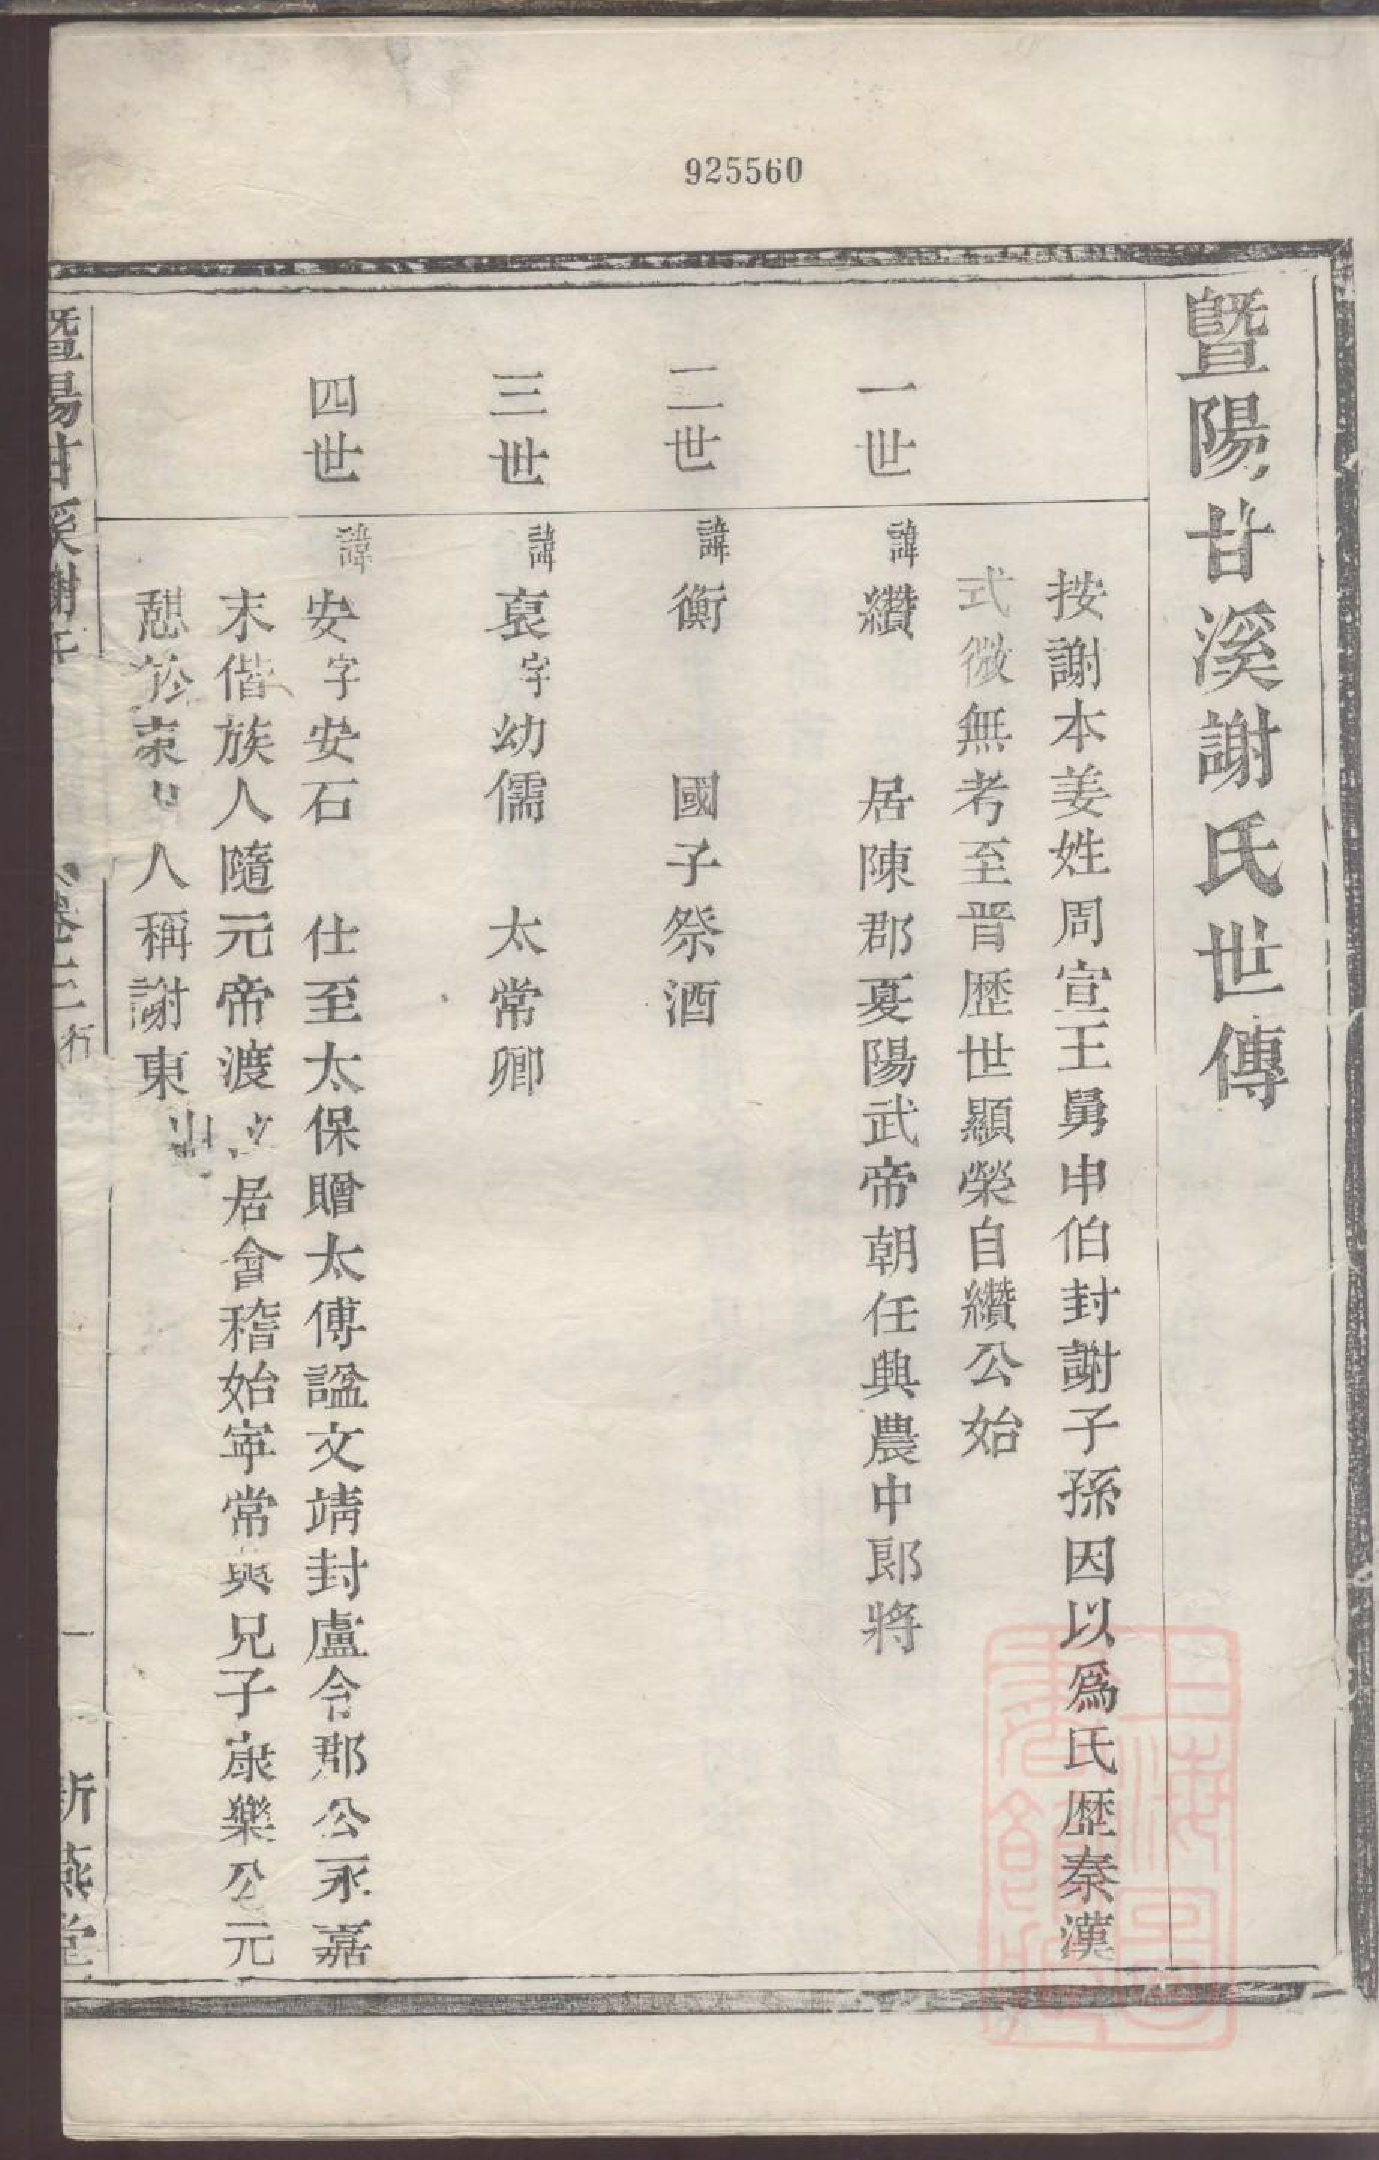 925560
暨陽甘溪謝氏世傳
按謝本姜姓周宣王舅申伯封謝子孫因以爲氏歴秦漢
式微無考至晋歴世顯榮自纘公始
一世 諱纘 居陳郡夏陽武帝朝任典農中郎將
二世 諱衡 國子祭酒
三世 諱裒字幼儒 太常卿
四世 諱安字安石 仕至太保贈太傅諡文靖封盧令郡公永嘉
末偕族人隨元帝渡 居會稽始寕常與兄子康樂公元
憇於東 人稱謝東山
暨陽甘溪謝氏 卷二 一 新燕堂
上海圖書館藏